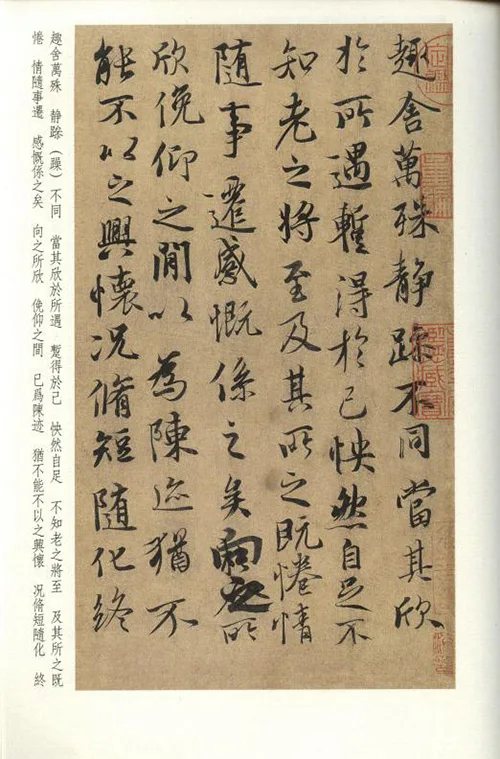 趣舍萬殊静跺不同當其欣
於所遇蹔得於己怏然自足不
知老之將至及其所之既惓情
随事遷感慨係之矣向之所
欣俛仰之閒以為陳迹猶不
能不以之興懷况脩短随化終
趣舍萬殊 静跺（躁）不同 當其欣於所遇 蹔得於己 怏然自足 不知老之將至 及其所之既
惓 情隨事遷 感慨係之矣 向之所欣 俛仰之間 已爲陳迹 猶不能不以之興懷 况脩短隨化 終